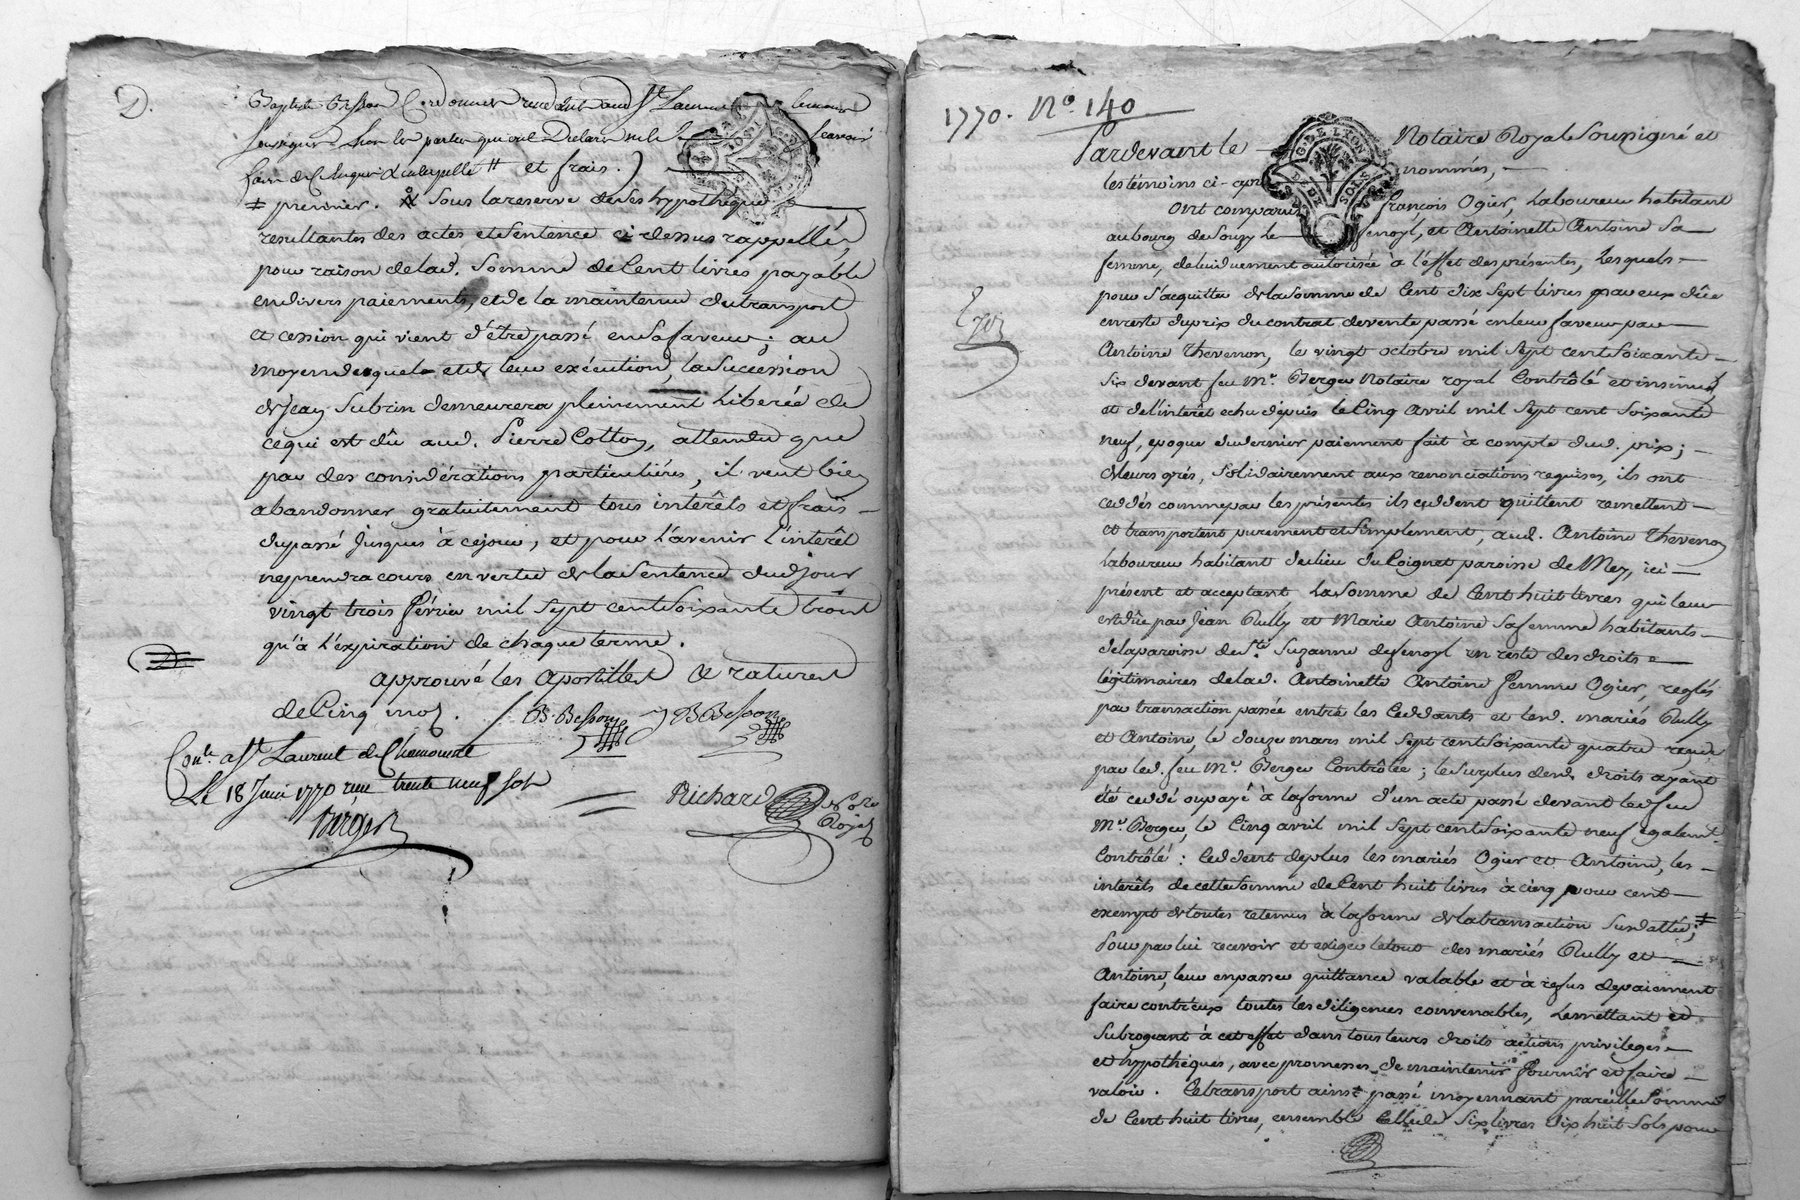 2.
Baptiste Cordonnier
et frais.
premier. Sous la reserve de ses hypotheques
resultantes des actes et sentence ci dessus rappellés,
pour raison de lad. Somme de Cent livres payable
en divers paiements, et de la maintenue du transport
et cession qui vient d'être passé en sa faveur; au
moyen desquels et de leur exécution, la succession
de Jean Subrin demeurera pleinement Libérée de
ce qui est dû aud. Pierre Colton, attendu que
par des considérations particuliéres, il veut bien
abandonner gratuitement tous interêts et frais
du passé jusques à ce jour, et pour l'avenir l'interêt
ne prendra cours en vertu de la Sentence dud. jour
vingt trois février mil sept cent soixante
qu'à l'expiration de chaque terme.
approuvé les apostilles & ratures
de Cinq mots.
B. Besson J B Besson
Con.lé a St Laurent de Chamousset
Le 18 Juin 1770 reçu trente neuf sols
Berger
Richard No.re Royal
1770. N.o 140
Pardevant le Notaire Royal Soussigné et
les témoins ci-après nommés,
G. DE LYON
DEUX SOLS
Ont comparus françois Ogier, Laboureur habitant
au bourg de Souzy le
femme, de lui duement autorisée à l'effet des présentes, Lesquels
pour s'acquitter de la somme de Cent dix sept livres par eux dûe
en reste du prix du contrat de vente passé en leur faveur par
Antoine Thevenon, le vingt octobre mil sept cent soixante
six devant feu M.e Berger Notaire royal Contrôlé et insinué,
et de l'interêt echu depuis le Cinq avril mil sept cent soixante
neuf, epoque du dernier paiement fait à compte dud. prix;
de leurs grés, solidairement aux renonciations requises, ils ont
ceddés comme par les présentes ils ceddent quittent remettent
et transportent purement et simplement, aud. Antoine Thevenon
Laboureur habitant du lieu du Poignet paroisse de Mey, ici
présent et acceptant, La somme de Cent huit livres qui leur
est dûe par Jean Rully et Marie Antoine sa femme habitants
de la paroisse de S.te Suzanne de fenoyl en reste des droits
légitimaires de lad. Antoinette Antoine femme Ogier, reglés
par transaction passée entre les Ceddants et lesd. mariés Rully
et Antoine, le douze mars mil sept cent soixante quatre reçue
par led. feu M.e Berger Contrôlée; le surplus desd. droits ayant
été ceddé ou payé à la forme d'un acte passé devant led. feu
M.e Berger, le Cinq avril mil sept cent soixante neuf egalem.t
Contrôlé: Ceddent de plus les mariés Ogier et Antoine, les
interêts de cette somme de Cent huit livres à cinq pour cent
exempt de toutes retenues à la forme de la transaction susdattée;
Pour par lui recevoir et exiger le tout des mariés Rully et
Antoine, leur en passer quittance valable et à refus de paiement
faire contr'eux toutes les diligences convenables, Le mettant et
Subrogeant à cet effet dans tous leurs droits actions privileges
et hypothéques, avec promesses de maintenir fournir et faire
valoir. Ce transport ainsi passé moyennant pareille somme
de Cent huit livres, ensemble Celle de Six livres dix huit Sols pour